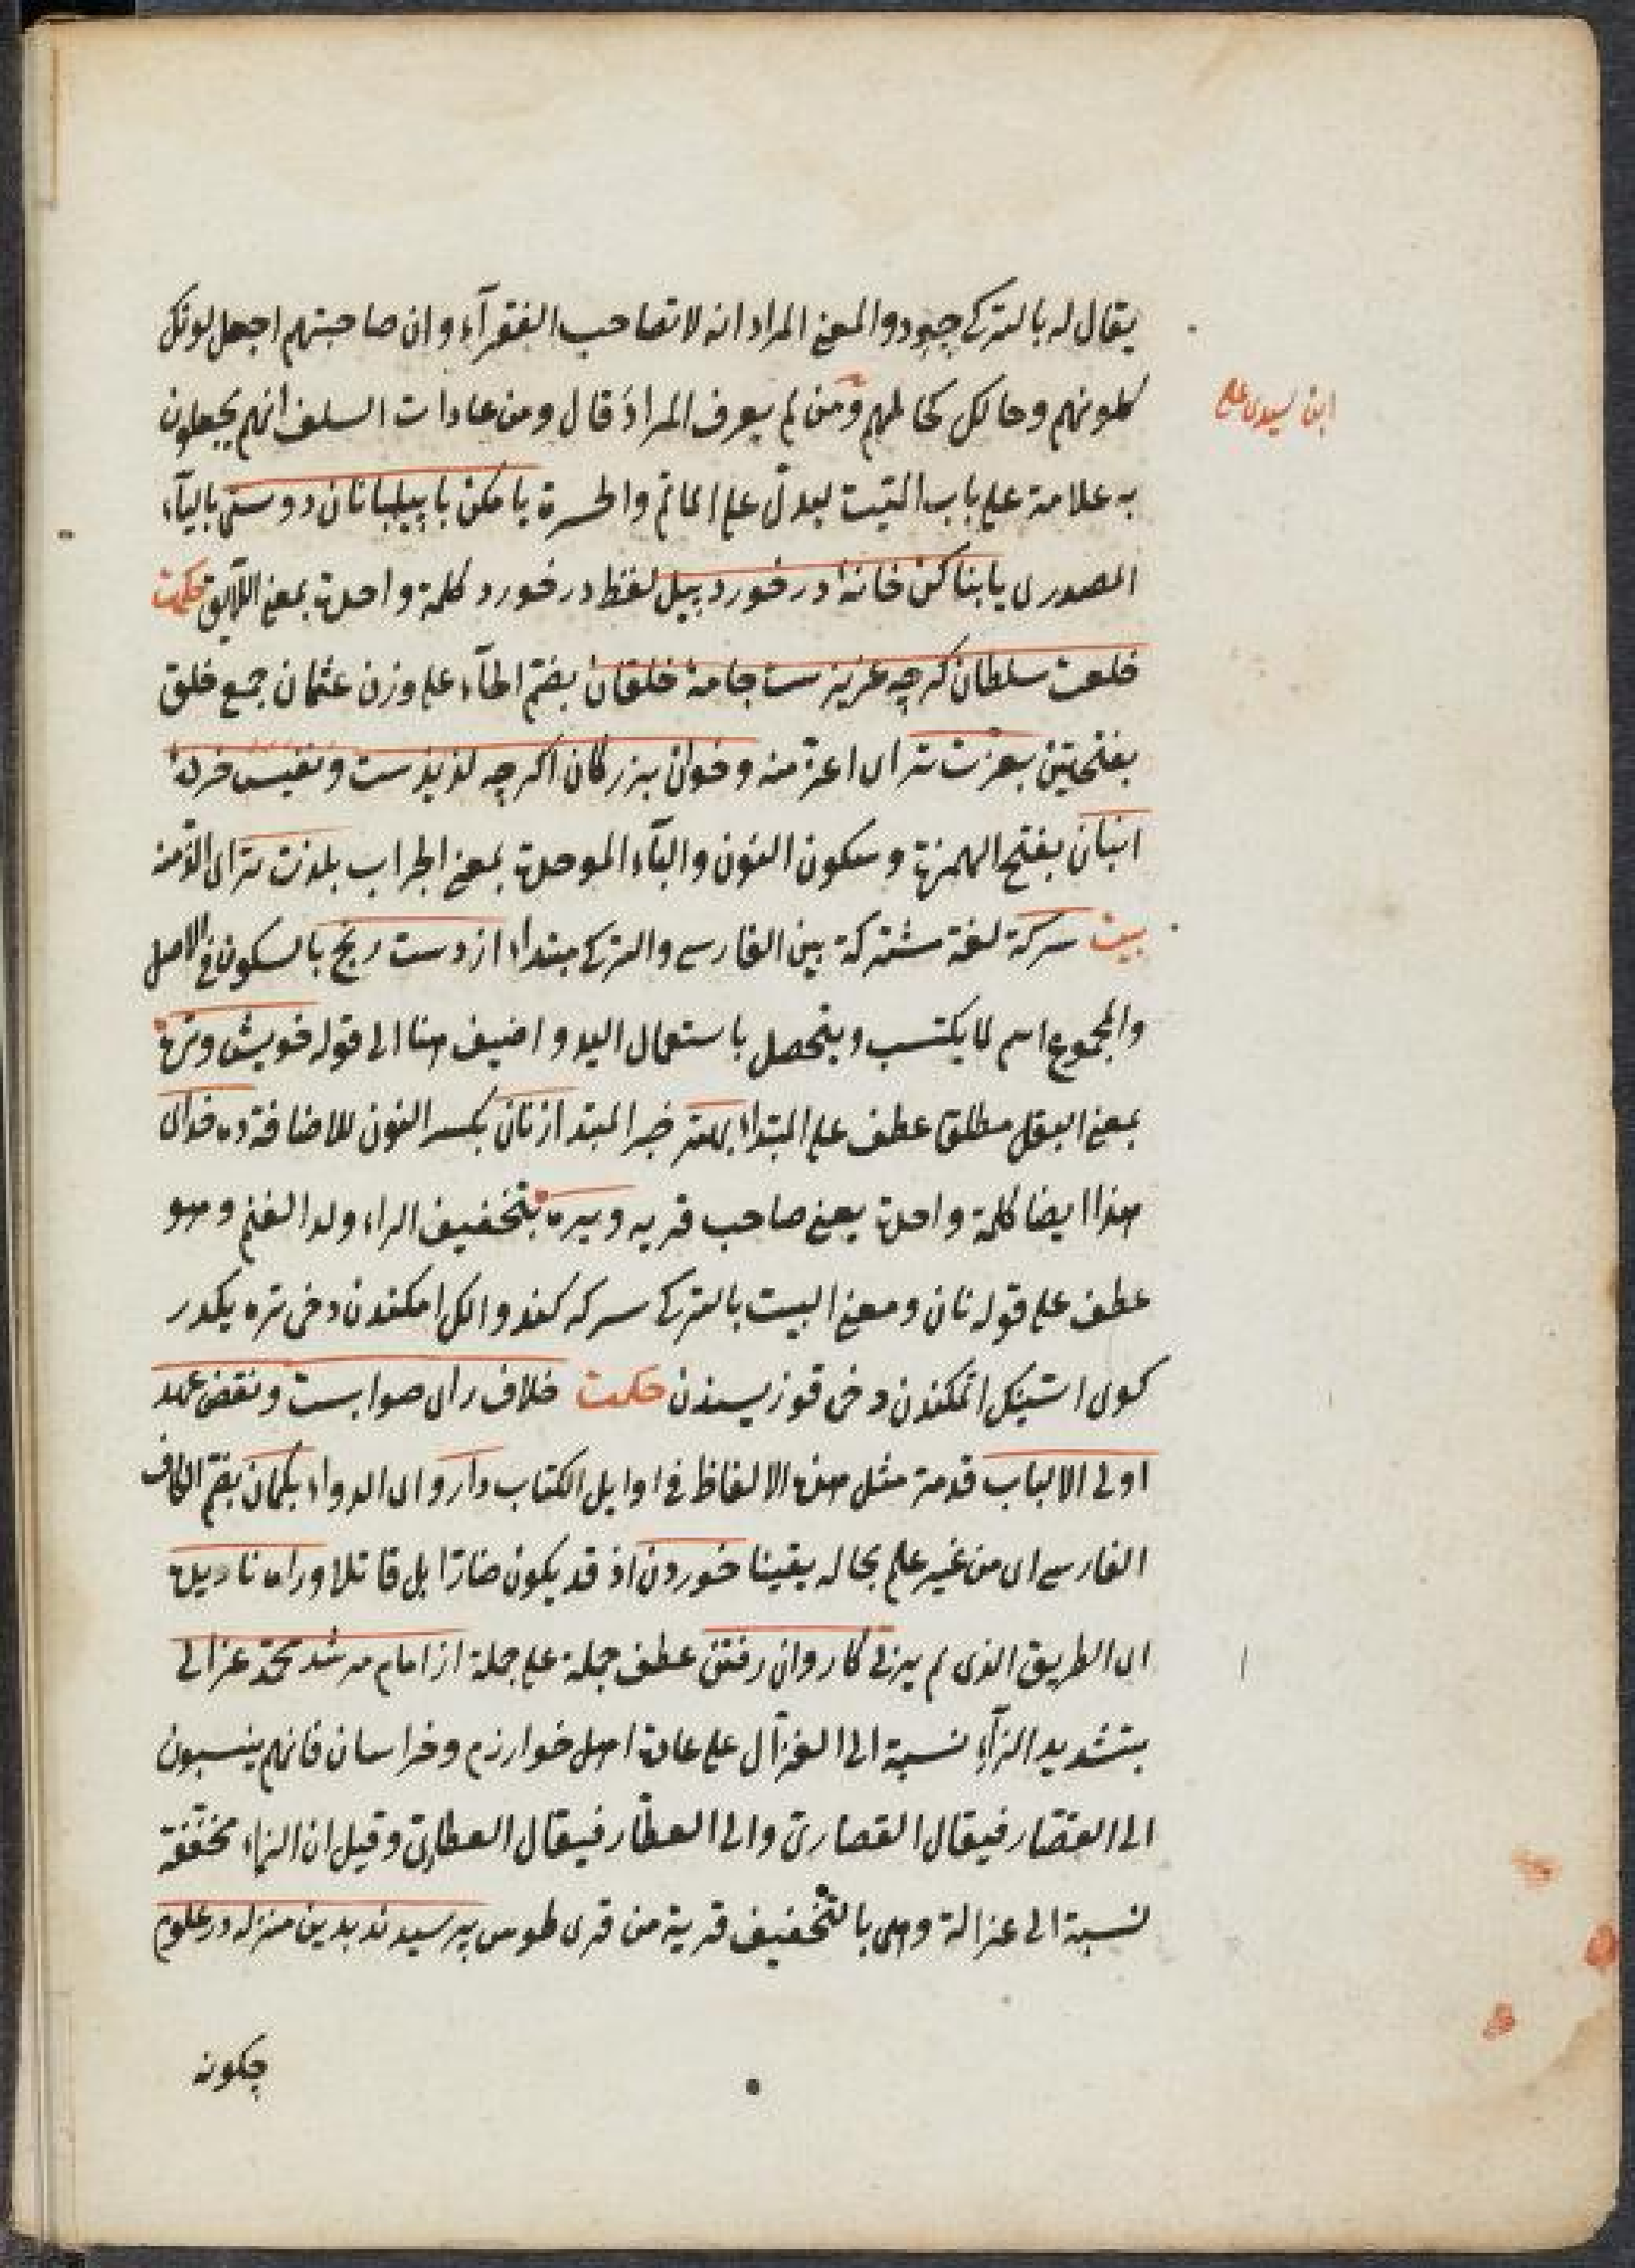 يقال له بالتركى چبود والمعنى المراد انه لا تصاحب الفقرآء وان صاحبتهم اجعل لونك
كلونهم وحالك كحالهم ومن لم يعرف المراد قال ومن عادات السلف انهم يجعلون
ابن سيدى على
به علامة على باب الميت ليدلّ على الماتم والحسرة يا مكن با پيلبانان دوستى باليآء
المصدرى يا بنا كن خانهٔ در خورد پيل لفظ در خورد كلمة واحدة بمعنى اللآيق حكمت
خلعت سلطان كرچه عزيز ست جامهٔ خلقان بضم الخآء على وزن عثمان جمع خلق
بفتحتين بعزت تر اى اعز منه وخوان بزركان اكرچه لذيذست ونفيس خردهٔ
انبان بفتح الهمزة وسكون النون والبآء الموحدة بمعنى الجراب بلذت تر اى الذّ منه
بيت سركه لغة مشتركة بين الفارسى والتركى مبتداء از دست رنج بالسكون فى الاصل
والمجموع اسم لما يكتسب ويتحصل باستعمال اليد واضيف هنا الى قوله خويش وتره
بمعنى البقل مطلقا عطف على المبتداء بهتر خبر المبتدا از نان بكسر النون للاضافة ده خداى
هذا ايضا كلمة واحدة يعنى صاحب قريه وبره بتخفيف الراء ولد الغنم وهو
عطف على قوله نان ومعنى البيت بالتركى سركه كندو الك امكندن دخى تره يكدر
كوى استينك اتمكندن دخى قوزيسندن حكمت خلاف راى صوابست ونقض عهد
اولى الالباب قدمر مثل هذه الالفاظ فى اوايل الكتاب دارو اى الدواء بكمان بضم الكاف
الفارسى اى من غير علم بحاله يقينا خوردن اذ قد يكون ضارّا بل قاتلا وراه ناديده
اى الطريق الذى لم ير بى كاروان رفتن عطف جملة على جملة از امام مرشد محمد غزالى
بتشديد الزآء نسبة الى الغزّال على عادة اهل خوارزم وخراسان فانهم ينسبون
الى القصّار فيقال القصّارى والى العطّار فيقال العطّارى وقيل ان الزاء مخففة
نسبة الى غزالة وهى بالتخفيف قرية من قرى طوس پرسيدند بدين منزله در علوم
چكونه